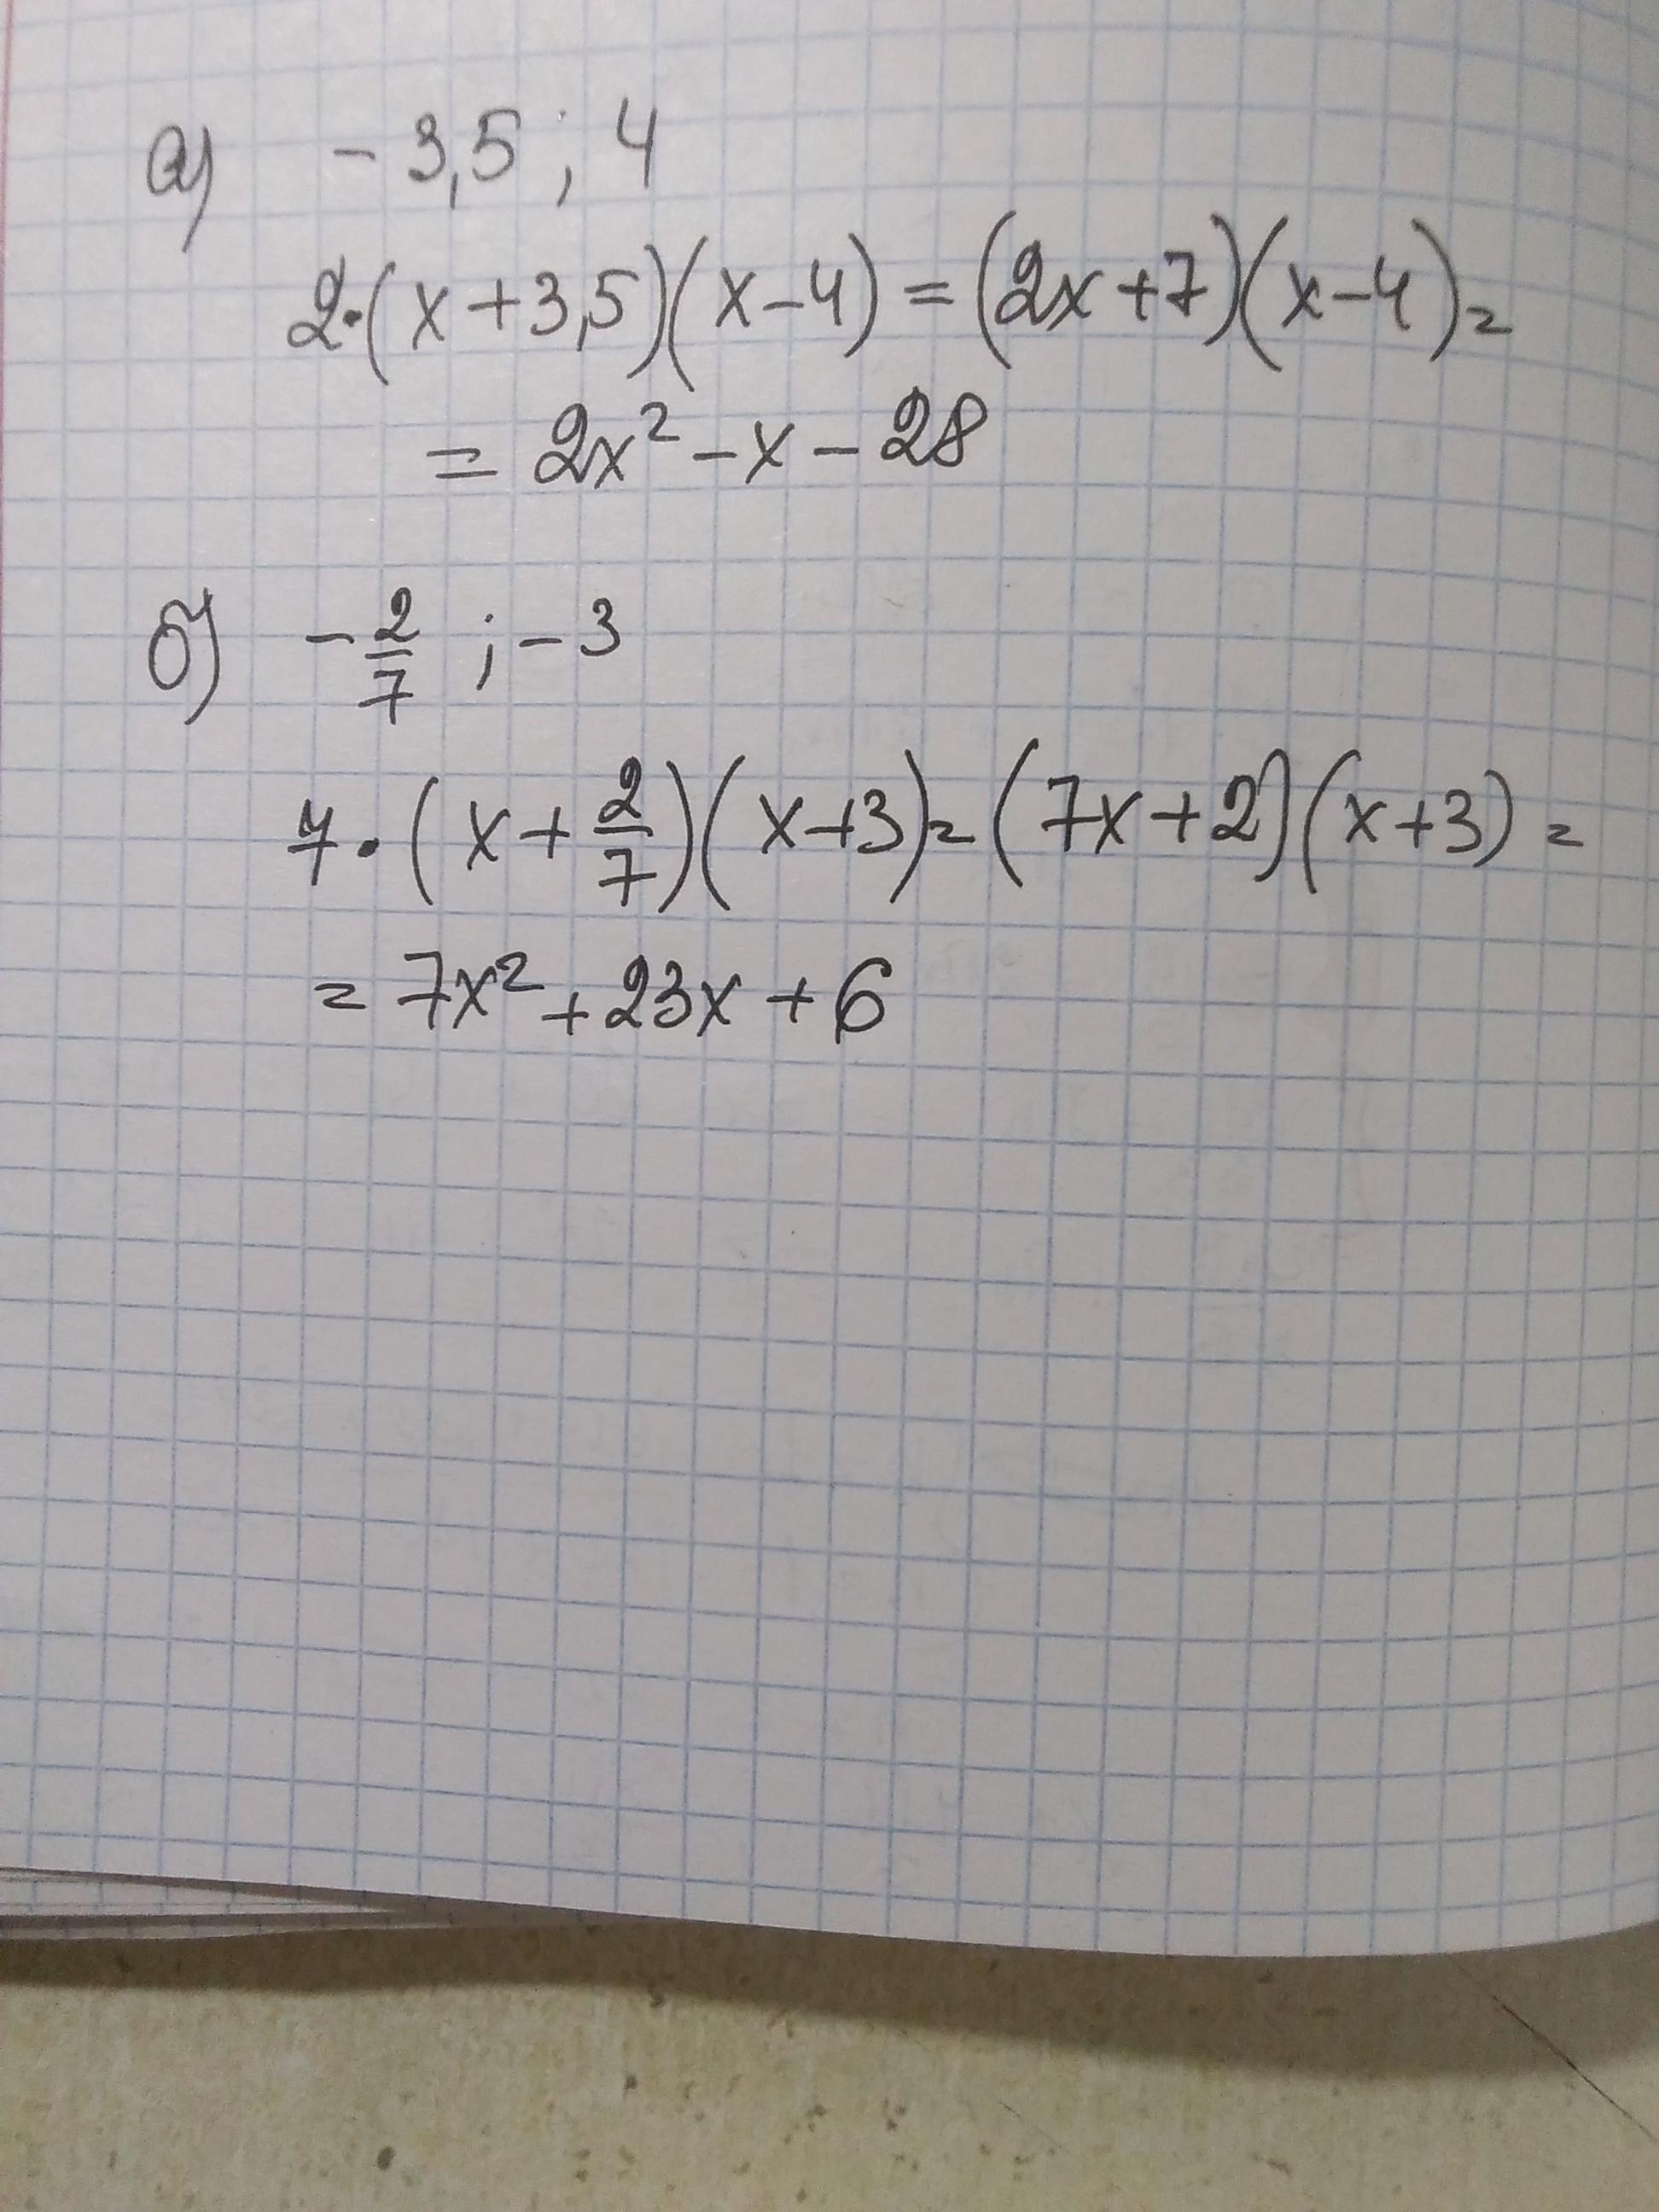 а) - 3,5 ; 4
2·(x+3,5)(x-4) = (2x+7)(x-4) =
= 2x² - x - 28
б) - 2/7 ; - 3
7·(x + 2/7)(x+3) = (7x+2)(x+3) =
= 7x² + 23x + 6